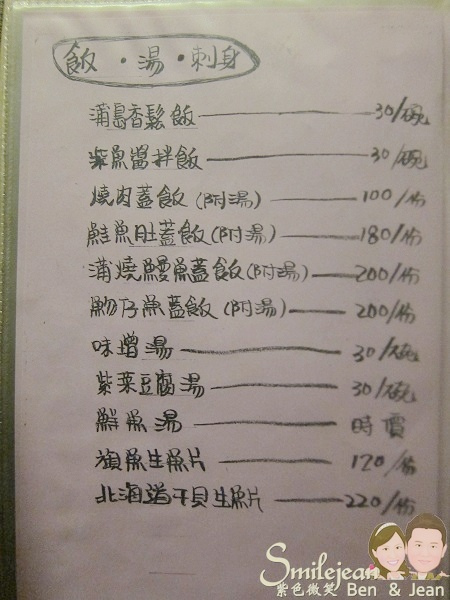 飯·湯·刺身
蒲島香鬆飯 30/碗
柴魚醬拌飯 30/碗
燒肉蓋飯(附湯) 100/份
鮭魚肚蓋飯(附湯) 180/份
蒲燒鰻魚蓋飯(附湯) 200/份
魩仔魚蓋飯(附湯) 200/份
味增湯 30/碗
紫菜豆腐湯 30/碗
鮮魚湯 時價
旗魚生魚片 120/份
北海道干貝生魚片 220/份
Smilejean
紫色微笑 Ben & Jean